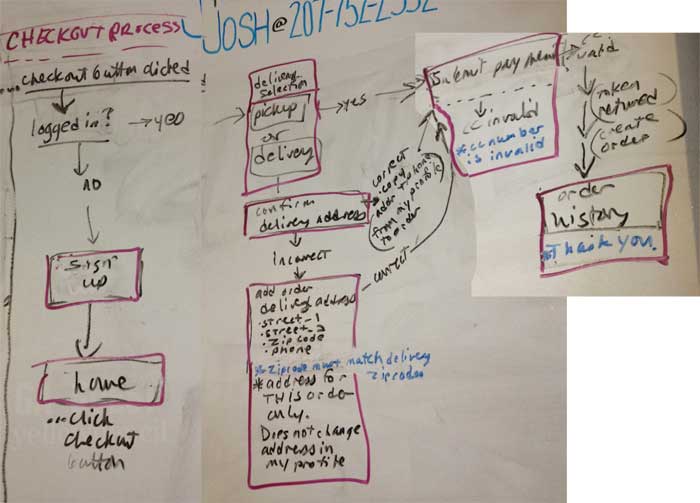 CHECKOUT PROCESS
checkout button clicked
logged in? → yes
NO
sign
up
home
...click
checkout
button
JOSH@207-752-2332
delivery
selection
pickup
or
delivery
→ yes
confirm
delivery address
correct
copy
addr + phone
from my profile
to order
incorrect
correct
add order
delivery address
• street_1
• street_2
• zip code
• phone
* Zipcode must match delivery
zipcodes
* address for
THIS order
only.
Does not change
address in
my profile
Submit payment
cc invalid
* cc number
is invalid
cc
valid
token
returned
create
order
order
history
* Thank you.